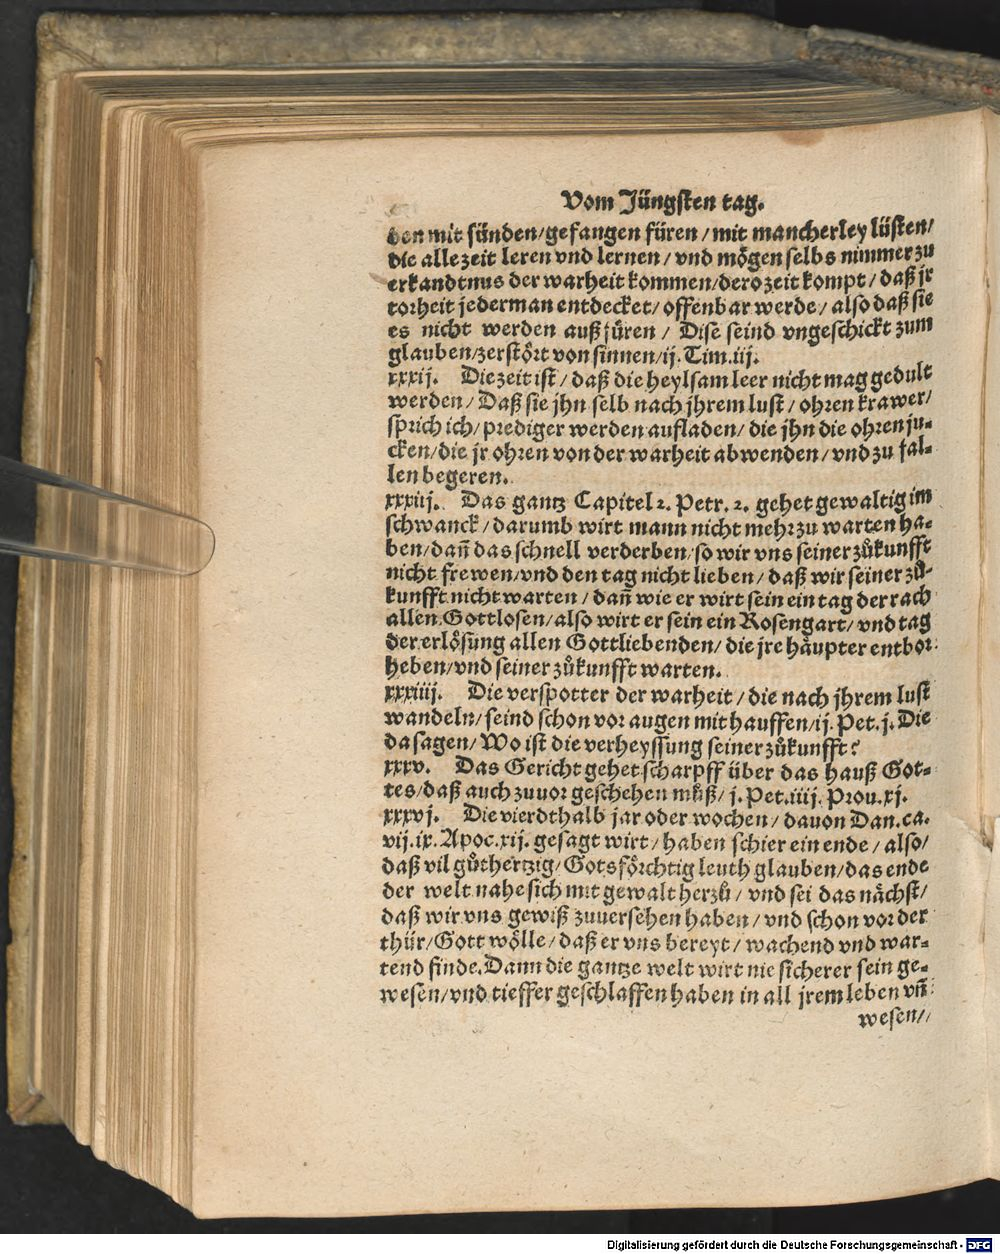 Vom Jüngsten tag.
den mit sünden/gefangen füren/mit mancherley lüsten/
die allezeit leren vnd lernen/vnd mögen selbs nimmer zu
erkandtnus der warheit kommen/dero zeit kompt/daß jr
torheit jederman entdecket/offenbar werde/also daß sie
es nicht werden auß füren/Dise seind vngeschickt zum
glauben/zerstört von sinnen/ij.Tim.iij.
xxxij. Die zeit ist/daß die heylsam leer nicht mag gedult
werden/Daß sie jhn selb nach jhrem lust/ohren krawer/
sprich ich/prediger werden aufladen/die jhn die ohren ju-
cken/die jr ohren von der warheit abwenden/vnd zu fal-
len begeren.
xxxiij. Das gantz Capitel 2. Petr. 2. gehet gewaltig im
schwanck/darumb wirt mann nicht mehr zu warten ha-
ben/dañ das schnell verderben/so wir vns seiner zůkunfft
nicht frewen/vnd den tag nicht lieben/daß wir seiner zů-
kunfft nicht warten/dañ wie er wirt sein ein tag der rach
allen Gottlosen/also wirt er sein ein Rosengart/vnd tag
der erlösung allen Gottliebenden/die jre häupter entbor
heben/vnd seiner zůkunfft warten.
xxxiiij. Die verspotter der warheit/die nach jhrem lust
wandeln/seind schon vor augen mit hauffen/ij.Pet.j. Die
da sagen/Wo ist die verheyssung seiner zůkunfft?
xxxv. Das Gericht gehet scharpff über das hauß Got-
tes/daß auch zuuor geschehen můß/j.Pet.iiij.Prou.xj.
xxxvj. Die vierdthalb jar oder wochen/dauon Dan.ca.
vij.ix.Apoc.xij.gesagt wirt/haben schier ein ende/also/
daß vil gůthertzig/Gotsförchtig leuth glauben/das ende
der welt nahe sich mit gewalt herzů/vnd sei das nächst/
daß wir vns gewiß zuuersehen haben/vnd schon vor der
thür/Gott wölle/daß er vns bereyt/wachend vnd war-
tend finde.Dann die gantze welt wirt nie sicherer sein ge-
wesen/vnd tieffer geschlaffen haben in all jrem leben vñ
wesen/
Digitalisierung gefördert durch die Deutsche Forschungsgemeinschaft - DFG